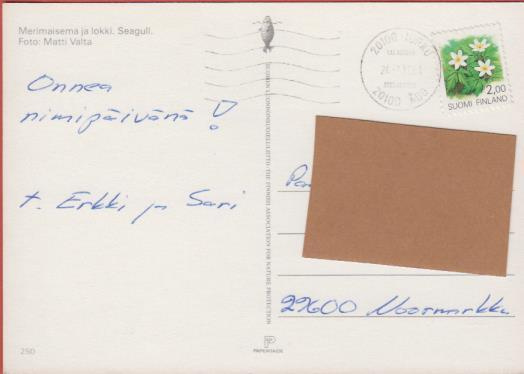 Merimaisema ja lokki. Seagull.
Foto: Matti Valta
Onnea
nimipäivänä!
t. Erkki ja Sari
250
SUOMEN LUONNONSUOJELULIITTO · THE FINNISH ASSOCIATION FOR NATURE PROTECTION
20100 TURKU
20100 ÅBO
2,00
SUOMI FINLAND
29600 Noormarkku